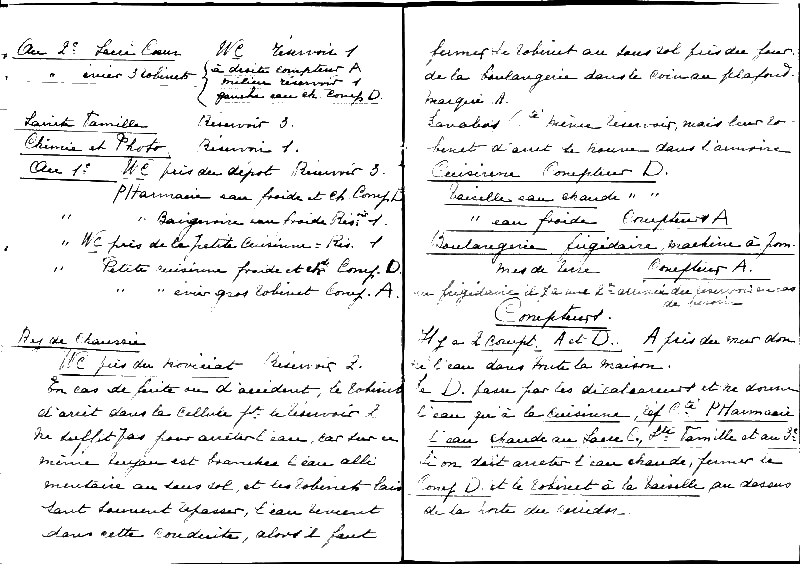 Au 2º Sacré Cœur WC Réservoir 1
" évier 3 robinets { à droite compteur A
milieu réservoir 1
gauche eau ch. Comp D.
Sainte Famille Réservoir 3.
Chimie et Photo Réservoir 1.
Au 1º WC près du dépot Réservoir 3.
PHarmacie eau froide et ch Comp D
" " Baignoire eau froide Rés. 1.
" WC près de la petite cuisine = Rés. 1
" Petite cuisine froide et ch. Comp. D.
" " " évier gros robinet Comp. A.
Rez de Chaussée
WC près du noviciat Réservoir 2.
En cas de fuite ou d'accident, le robinet
d'arrêt dans la cellule pr. le réservoir 2
ne suffit pas pour arrêter l'eau, car sur ce
même tuyau est branchée l'eau ali
mentaire au sous sol, et les robinets lais
sant souvent repasser, l'eau revient
dans cette conduite, alors il faut
fermer le robinet au sous sol près du four
de la boulangerie dans le coin au plafond
marqué A.
Lavabos même réservoir, mais leur ro-
binet d'arrêt se trouve dans l'armoire
Cuisine Compteur D.
Vaiselle eau chaude " "
" eau froide Compteur A
Boulangerie frigidaire, machine à pom-
mes de terre Compteur A.
au frigidaire il y a une 2me arrivée du réservoir en cas
de besoin
Compteurs.
Il y a 2 compt. A et D. A près du mur don
ne l'eau dans toute la maison.
Le D. passe par les décalcareurs et ne donne
l'eau qu'à la cuisine, PHarmacie
l'eau chaude au Sacré C, Ste Famille et au 3e
Si on doit arrêter l'eau chaude, fermer le
Comp D. et le robinet à la vaiselle au dessus
de la porte du corridor.